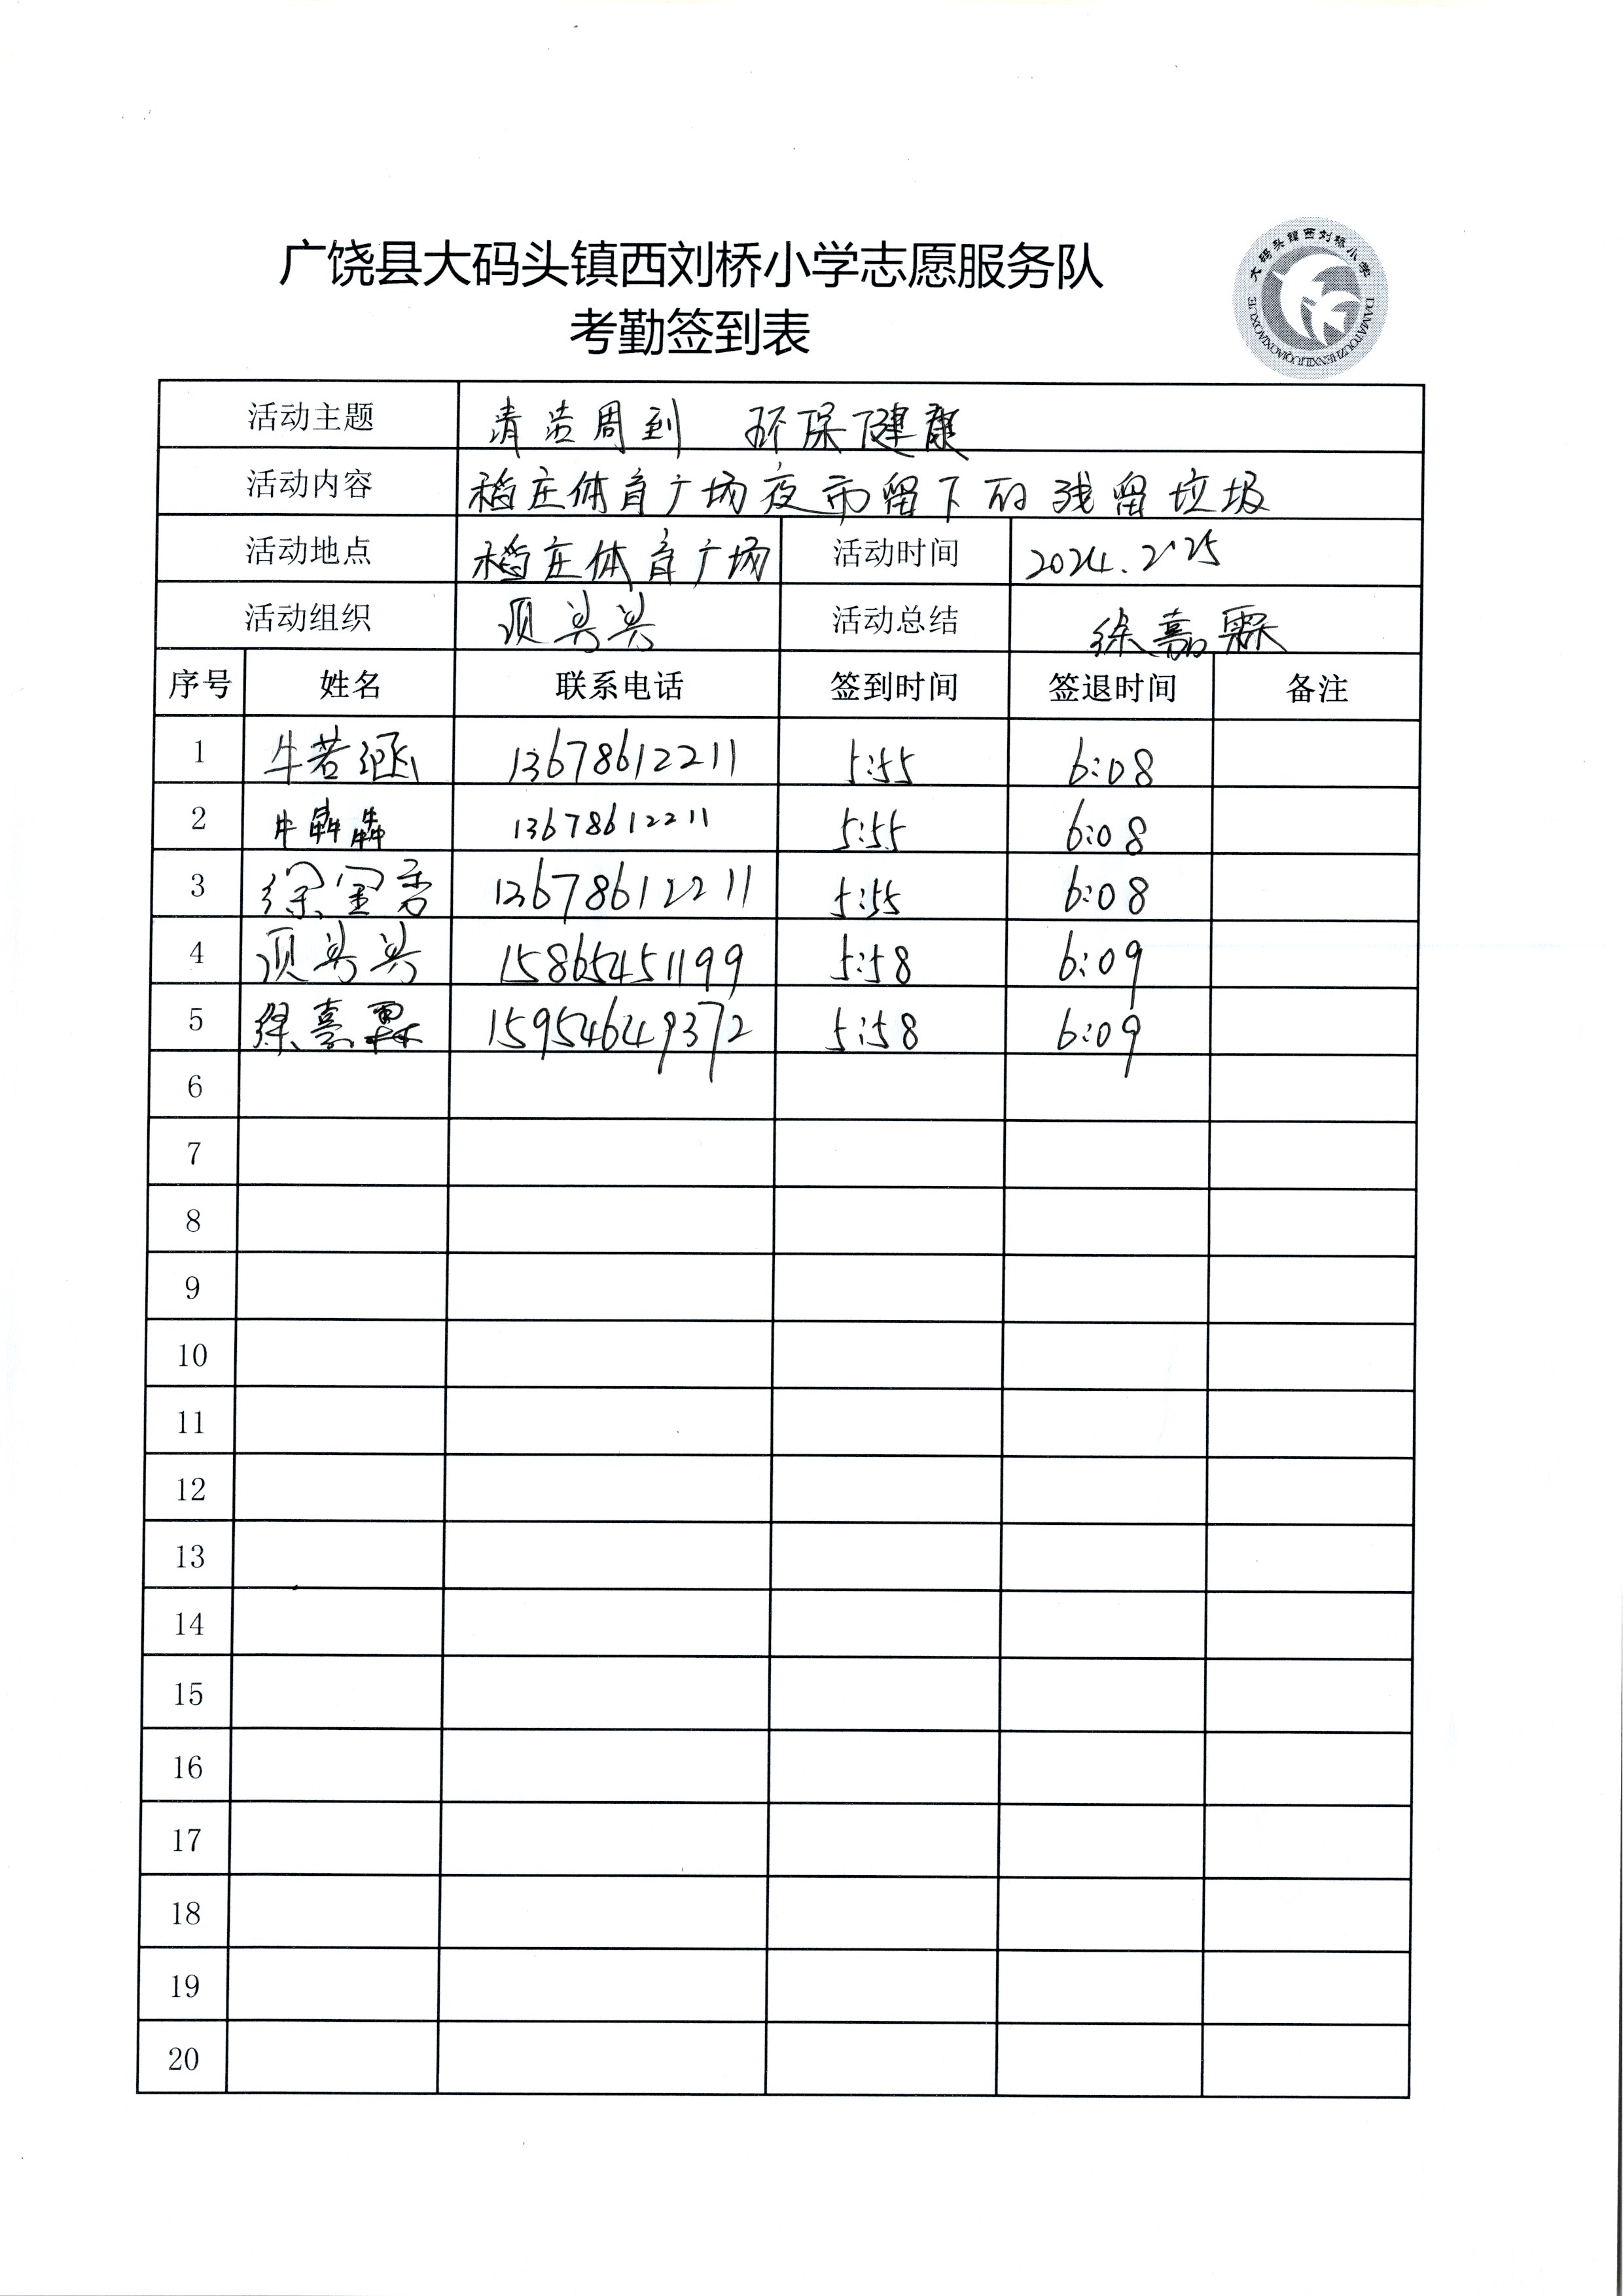 广饶县大码头镇西刘桥小学志愿服务队
考勤签到表
大码头镇西刘桥小学
DAMATOUZHENXILIUQIAOXIAOXUE
活动主题 清洁周到 环保健康
活动内容 稻庄体育广场夜市留下的残留垃圾
活动地点 稻庄体育广场 活动时间 2024.2.25
活动组织 活动总结 徐嘉霖
序号 姓名 联系电话 签到时间 签退时间 备注
1 牛若涵 13678612211 5:55 6:08
2 牛犇犇 13678612211 5:55 6:08
3 徐 13678612211 5:55 6:08
4 15865451199 5:58 6:09
5 徐嘉霖 15954649372 5:58 6:09
6
7
8
9
10
11
12
13
14
15
16
17
18
19
20